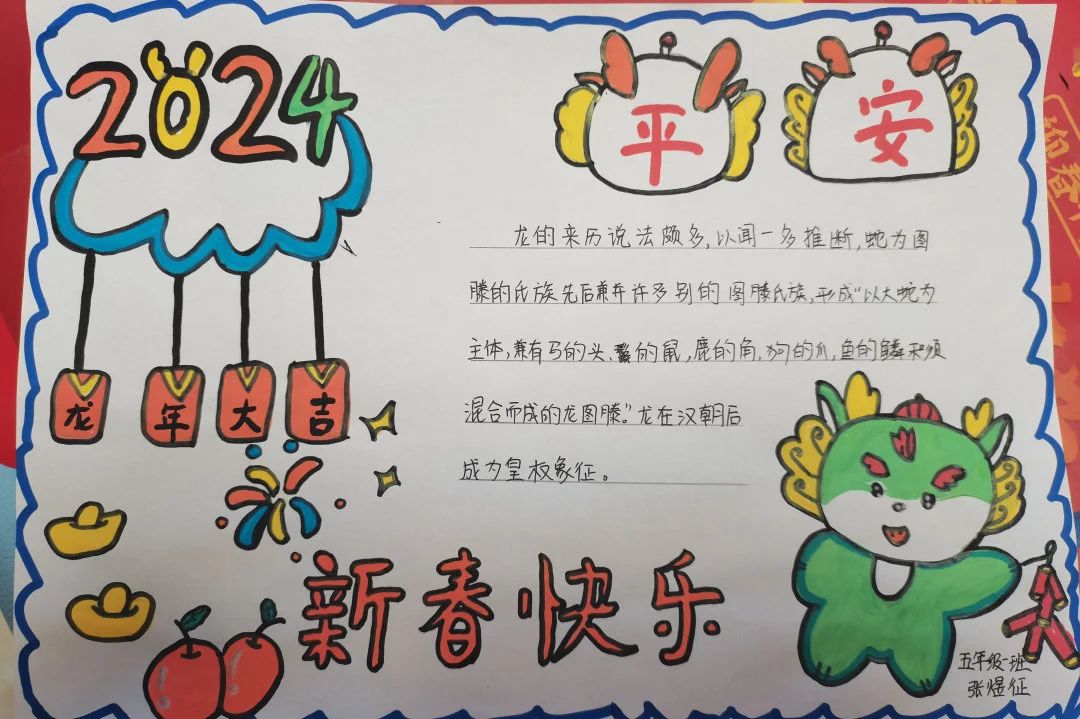 2024
平 安
龙的来历说法颇多,以闻一多推断,蛇为图
滕的氏族先后兼并许多别的图滕氏族,形成“以大蛇为
主体,兼有马的头、的鼠,鹿的角,狗的爪,鱼的鳞和须
混合而成的龙图滕。”龙在汉朝后
成为皇权象征。
龙 年 大 吉
新春快乐
五年级一班
张煜征